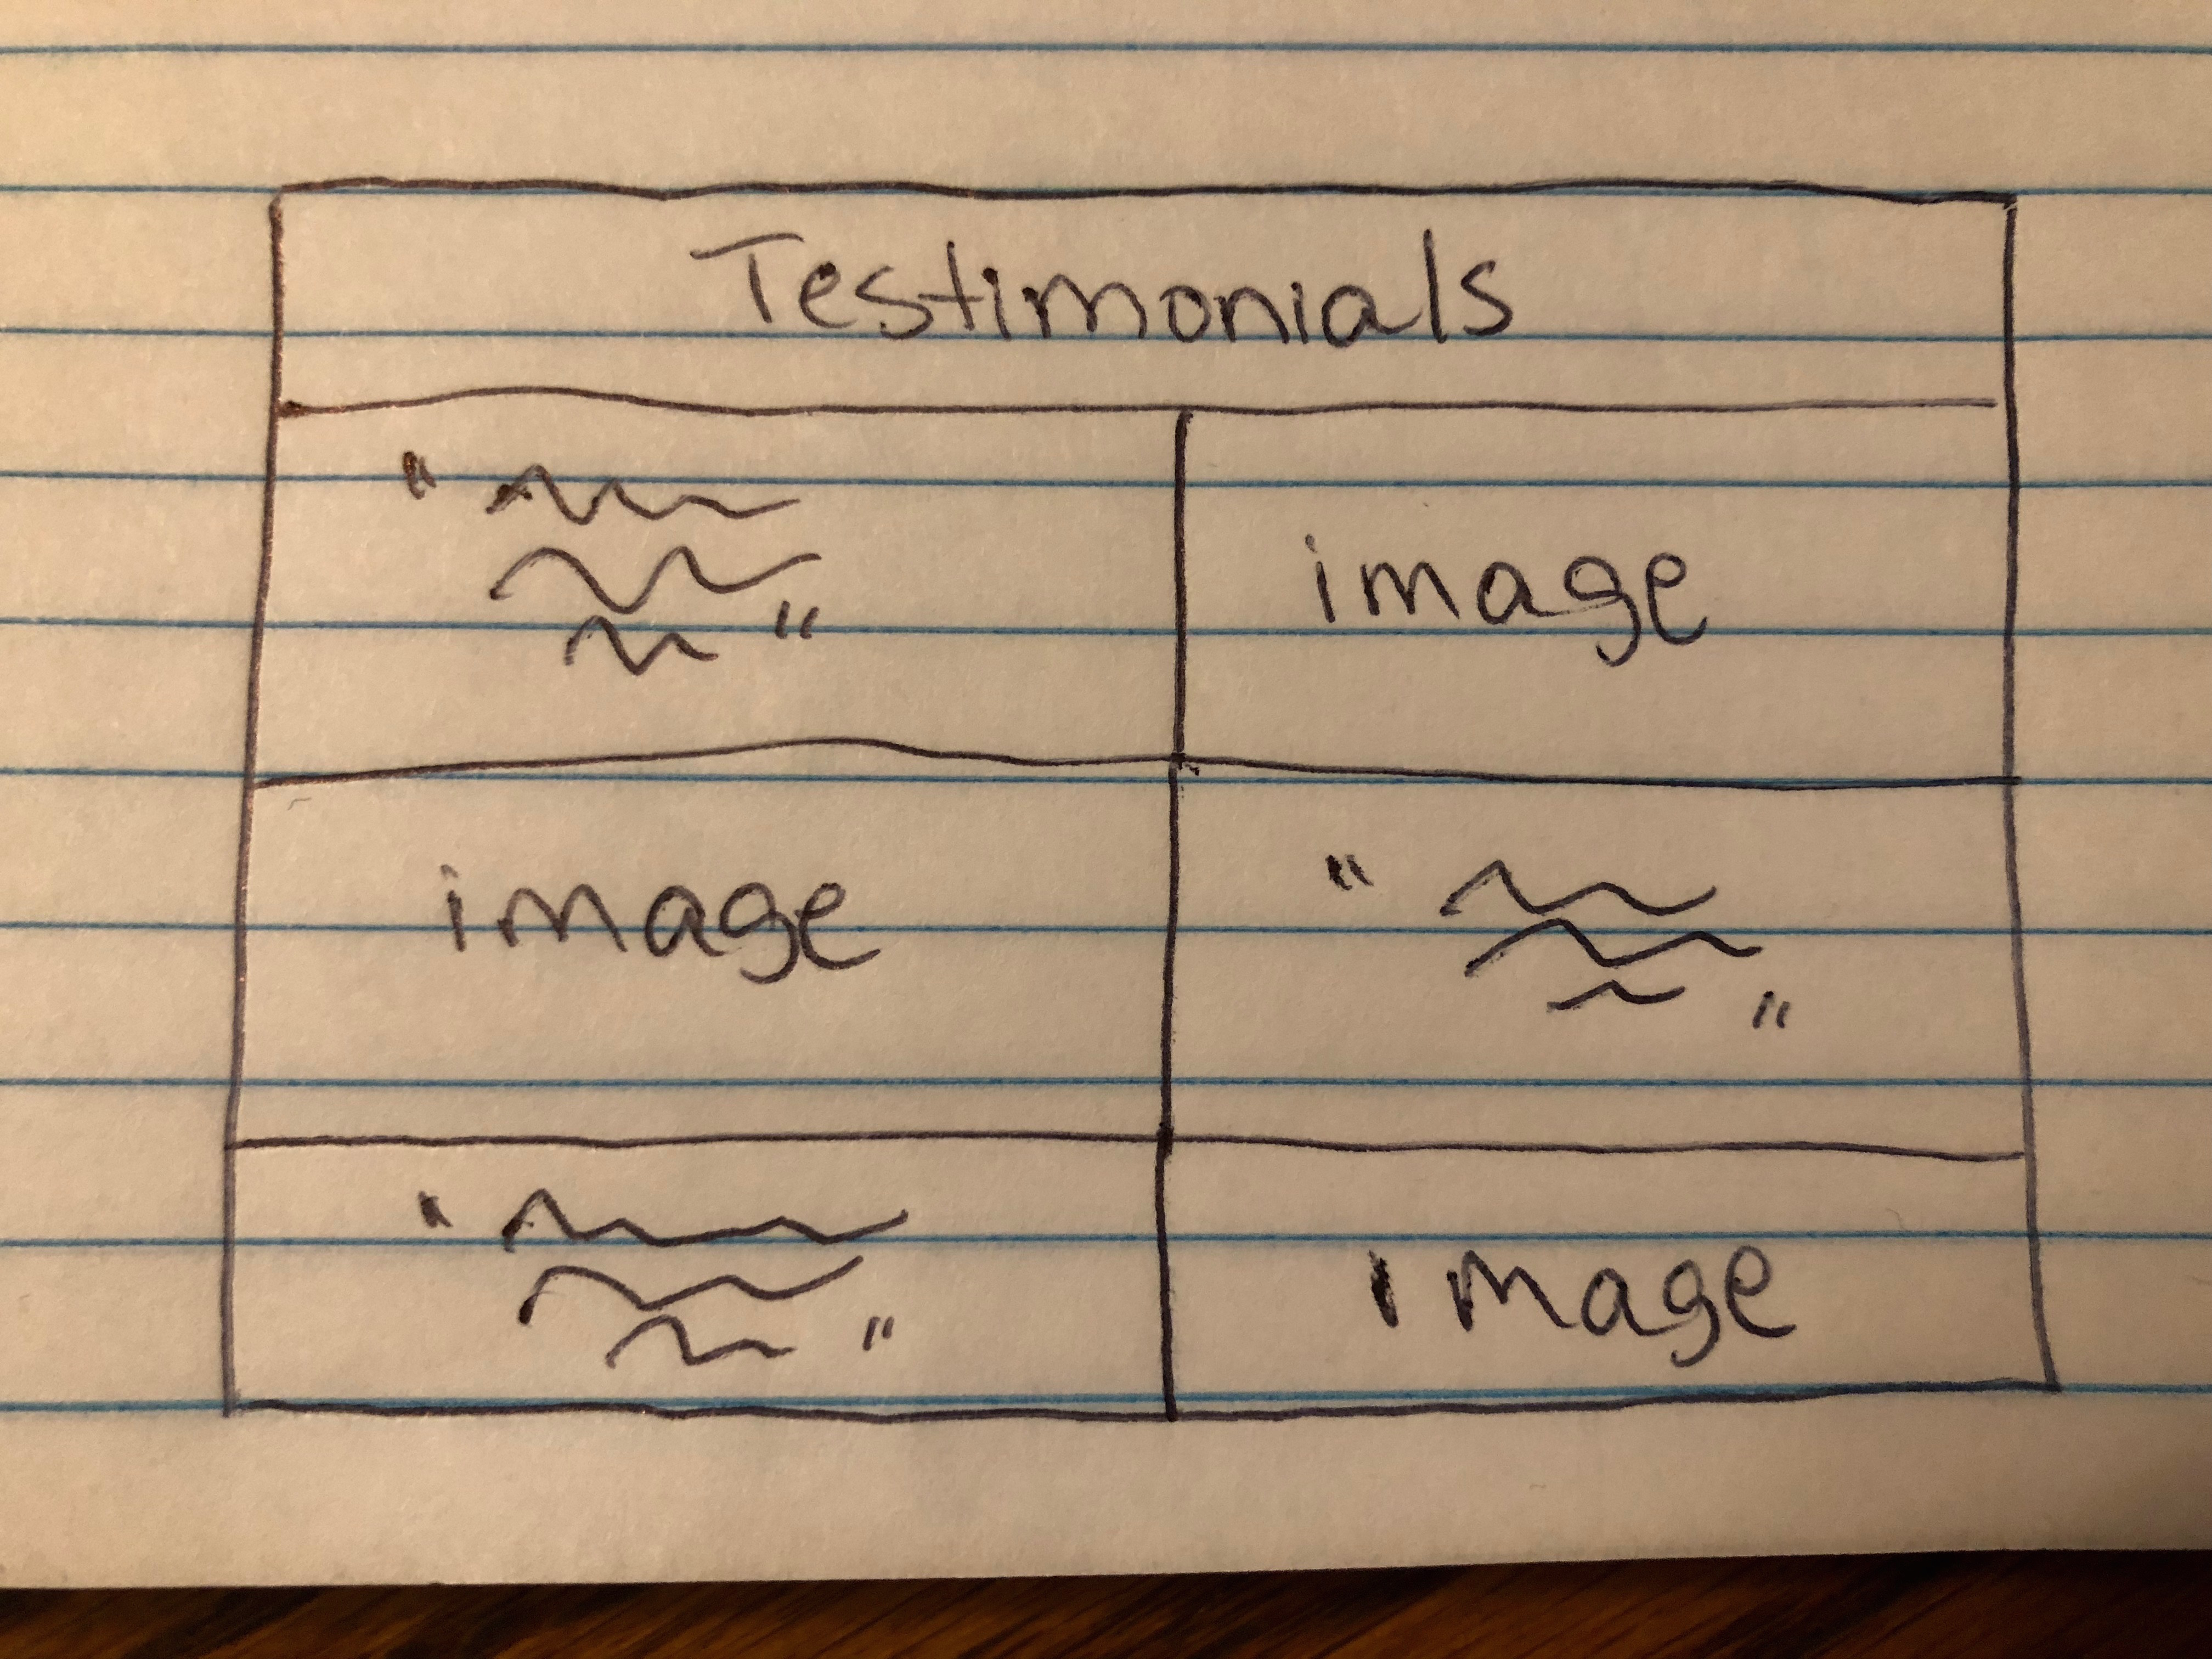 Testimonials
" "
image
image
" "
" "
image